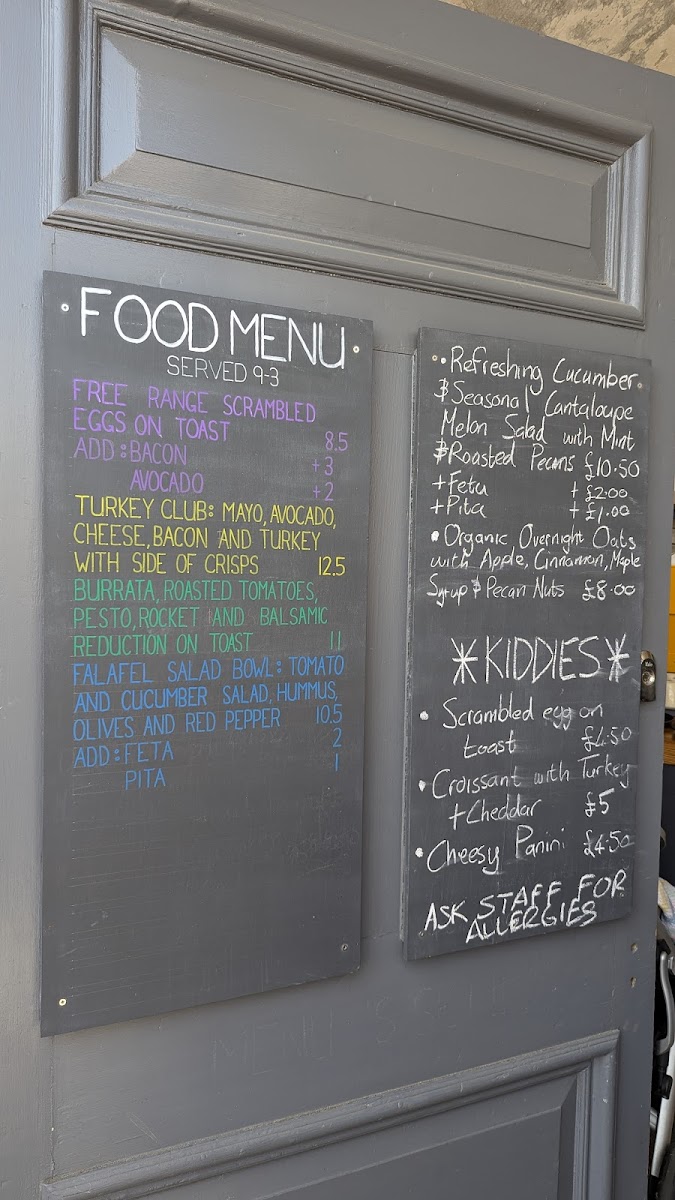 FOOD MENU
SERVED 9-3
FREE RANGE SCRAMBLED
EGGS ON TOAST 8.5
ADD: BACON +3
AVOCADO +2
TURKEY CLUB: MAYO, AVOCADO,
CHEESE, BACON AND TURKEY
WITH SIDE OF CRISPS 12.5
BURRATA, ROASTED TOMATOES,
PESTO, ROCKET AND BALSAMIC
REDUCTION ON TOAST 11
FALAFEL SALAD BOWL: TOMATO
AND CUCUMBER SALAD, HUMMUS,
OLIVES AND RED PEPPER 10.5
ADD: FETA 2
PITA 1
• Refreshing Cucumber
& Seasonal Cantaloupe
Melon Salad with Mint
& Roasted Pecans £10.50
+ Feta + £2.00
+ Pita + £1.00
• Organic Overnight Oats
with Apple, Cinnamon, Maple
Syrup & Pecan Nuts £8.00
*KIDDIES*
• Scrambled egg on
toast £4.50
• Croissant with Turkey
+ Cheddar £5
• Cheesy Panini £4.50
ASK STAFF FOR
ALLERGIES